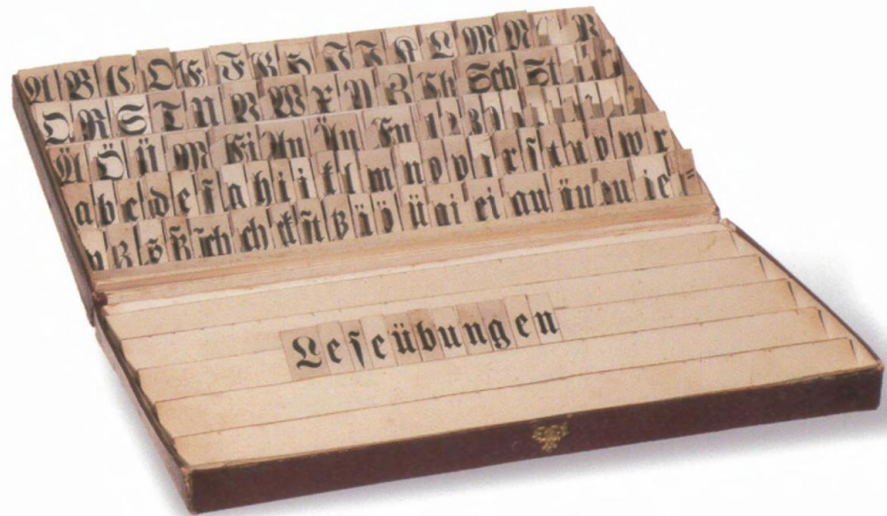 A B C D E F G H I J K L M N
Q R S T U V W X Y Z Ch Sch St
Ä Ö Ü Ai Ei Au Äu Eu 1 2 3
a b c d e f g h i j k l m n o p q r ſ t u v w x
y z s ß ſch ch ck ſt tz ä ö ü ai ei au äu eu ie =
Leſeübungen